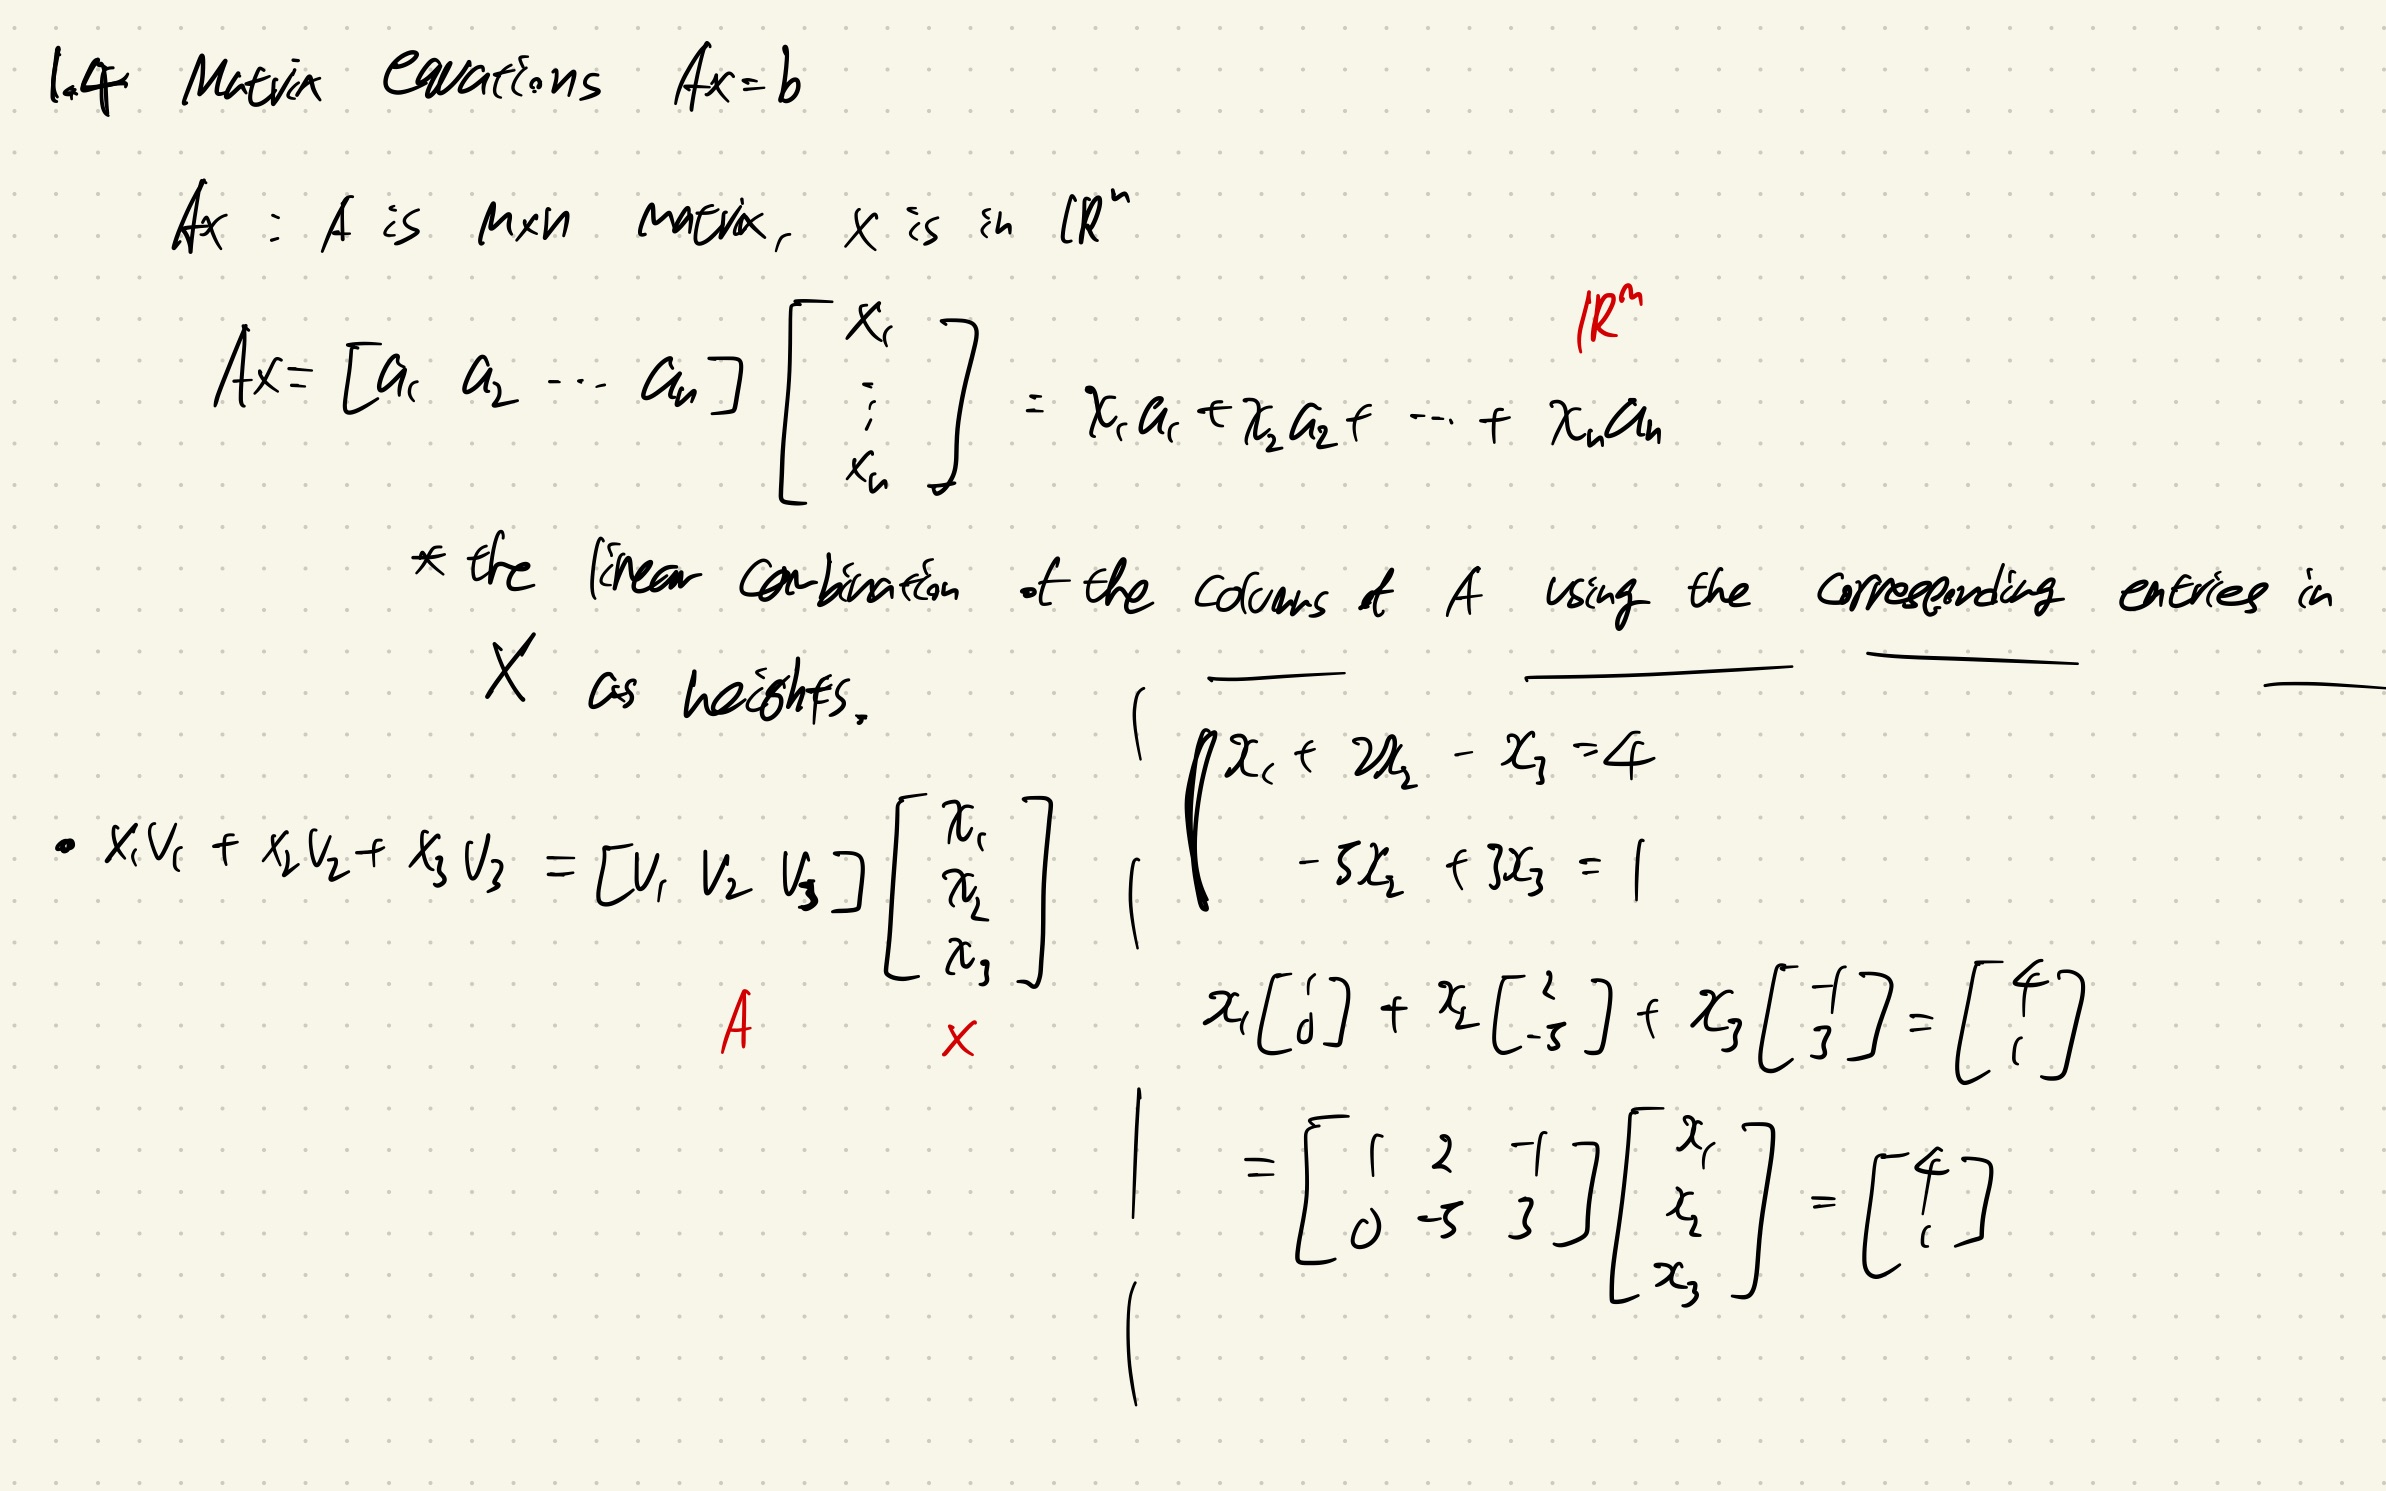 1.4 Matrix equations Ax=b
Ax : A is mxn matrix, x is in ℝⁿ
ℝᵐ
Ax = [a₁ a₂ ... aₙ] [x₁ ⋮ xₙ] = x₁a₁ + x₂a₂ + ... + xₙaₙ
* the linear combination of the columns of A using the corresponding entries in
X as weights.
• x₁v₁ + x₂v₂ + x₃v₃ = [v₁ v₂ v₃] [x₁ x₂ x₃]
A x
x₁ + 2x₂ - x₃ = 4
-5x₂ + 3x₃ = 1
x₁ [1 0] + x₂ [2 -5] + x₃ [-1 3] = [4 1]
= [1 2 -1 0 -5 3] [x₁ x₂ x₃] = [4 1]